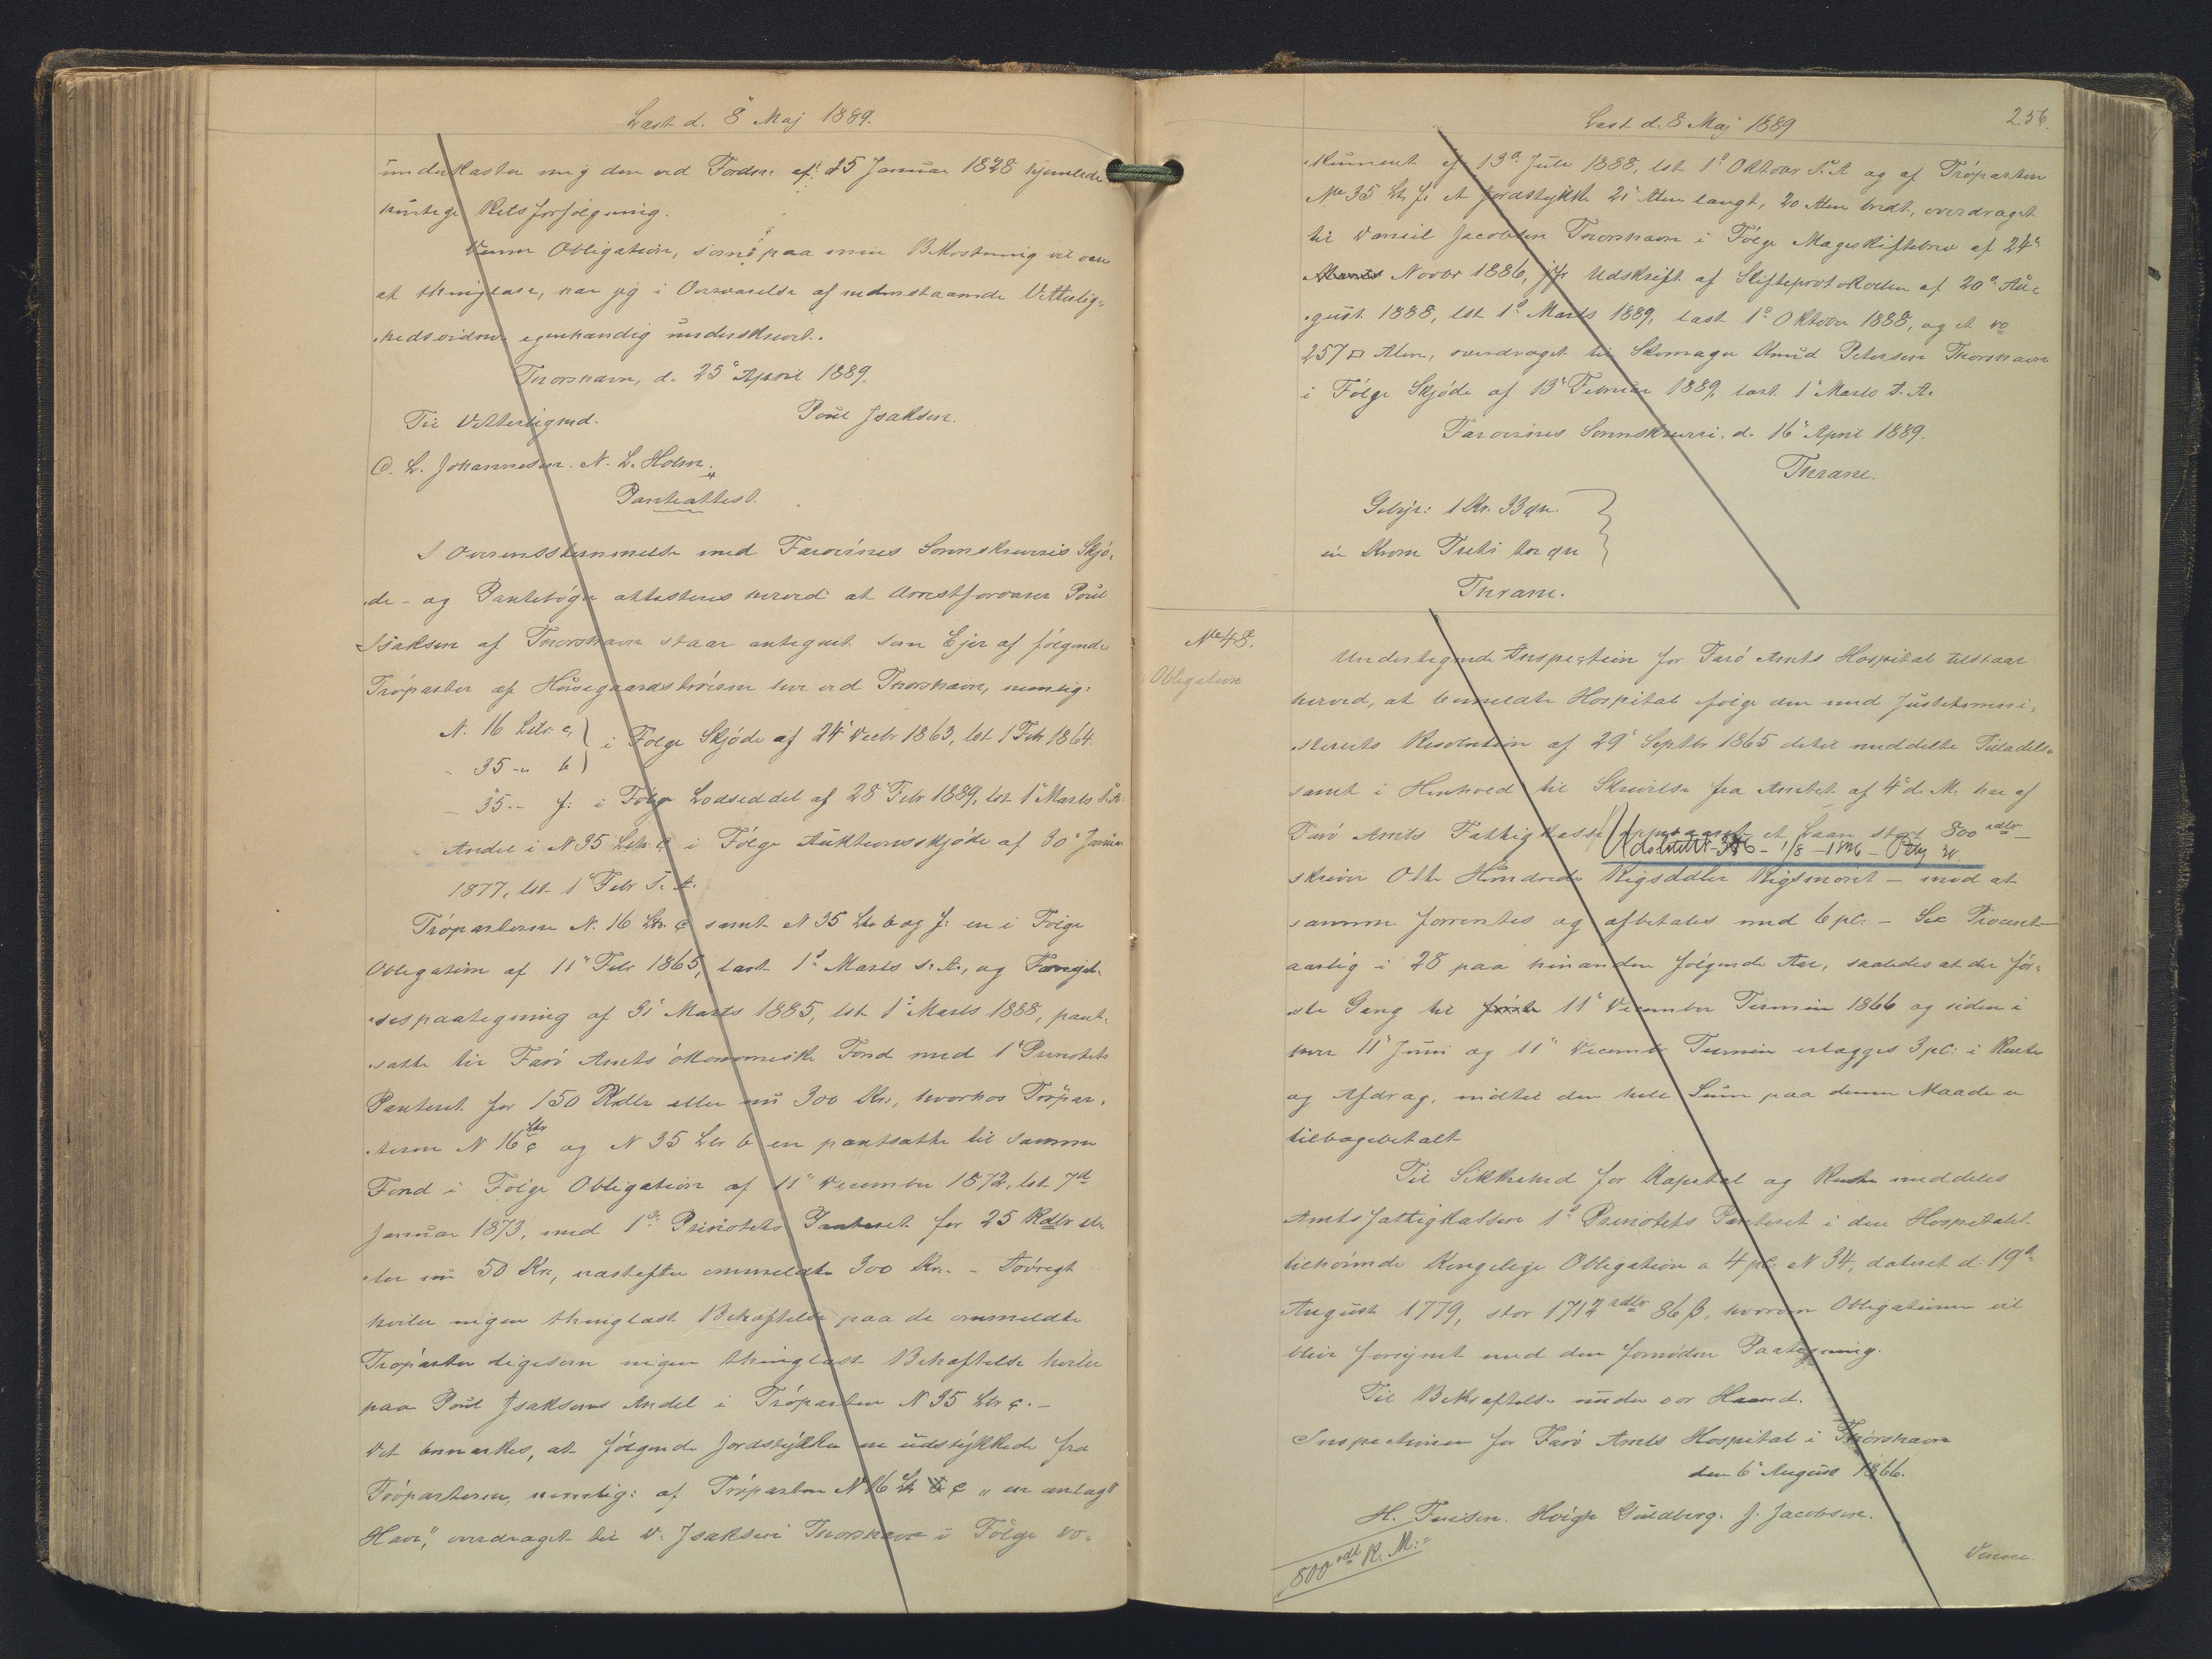 Læst d. 8 Maj 1889.
underkaster mig den ved Fordn: af 25 Januar 1828 hjemlede
hurtige Retsforfølgning.
Denne Obligation, som paa min Bekostning vil være
at thinglæse, har jeg i Overværelse af nedenstaaende Vitterlig-
hedsvidner egenhændig underskrevet.
Thorshavn, d. 25 April 1889.
Til Vitterlighed. Poul Isaksen.
O. L. Johannesen. N. L. Holm.
Panteattest.
I Overensstemmelse med Færøernes Sorenskriveris Skjø-
de- og Pantebøger attesteres herved at Arrestforvarer Poul
Isaksen af Thorshavn staar antegnet som Ejer af følgende
Trøparter af Husegaardstrøerne her ved Thorshavn, nemlig:
N. 16 Litr. c, } i Følge Skjøde af 24 Decbr 1863, lst 1 Febr 1864.
- 35 - b
- 35 - f: i Følge Lodseddel af 28 Febr 1889, lst 1 Marts s. A.
Andel i N 35 Litr. c i Følge Auktionsskjøde af 30 Januar
1877, lst 1 Febr s. A.
Trøparterne N. 16 Ltr. c samt N 35 Ltr b og f: ere i Følge
Obligation af 11 Febr 1865, læst 1 Marts s. A., og
paategning af 31 Marts 1885, lst 1 Marts 1888, pant-
satte til Færø Amts økonomiske Fond med 1 Prioritets
Panteret for 150 Rdlr eller nu 300 Kr:, hvorhos Trøpar-
terne N 16 Ltr c og N 35 Ltr b ere pantsatte til samme
Fond i Følge Obligation af 11 December 1872, lst 7de
Januar 1873, med 1ste Prioritets Panteret for 25 Rdlr el-
ler nu 50 Kr, næstefter ommeldte 300 Kr. - Iøvrigt
hviler ingen thinglæst Behæftelse paa de ommeldte
Trøparter ligesom ingen thinglæst Behæftelse hviler
paa Poul Isaksens Andel i Trøparten N 35 Ltr c. -
Det bemærkes, at følgende Jordstykker ere udstykkede fra
Trøparterne, nemlig: af Trøparten N 16 Ltr c "en anlagt
Have", overdraget til D. Isaksen Thorshavn i Følge Do-
Læst d. 8 Maj 1889
256.
kument af 13 Juli 1888, lst 1 Oktober s. A. og af Trøparten
No 35 Ltr f. et Jordstykke 21 Alen langt, 20 Alen bredt, overdraget
til Daniel Jacobsen Thorshavn i Følge Mageskiftebrev af 24
Novbr 1886, jfr Udskrift af Skifteprotokollen af 20 Au-
gust 1888, lst 1 Marts 1889, læst 1 Oktober 1888, og et Do
257 □ Alen, overdraget til Skomager Knud Petersen Thorshavn
i Følge Skjøde af 13 Februar 1889, læst 1 Marts s. A.
Færøernes Sorenskriveri, d. 16 April 1889.
Thrane.
Gebyr: 1 Kr. 33 Øre.
en Krone Treti tre Øre
Thrane.
No 48.
Obligation
Undertegnede Inspection for Færø Amts Hospital tilstaar
herved, at bemeldte Hospital ifølge den med Justitsmini-
steriets Resolution af 29 Septbr 1865 dertil meddelte Tilladelse
samt i Henhold til Skrivelse fra Amtet af 4 d. M. har af
Færø Amts Fattigkasse et Laan stort 800 rdlr
skriver Otte Hundrede Rigsdaler Rigsmønt - mod at
samme forrentes og afbetales med 6 pC: - Sex Procent -
aarlig i 28 paa hinanden følgende Aar, saaledes at der før-
ste Gang til 11 December Termin 1866 og siden i
hver 11 Juni og 11 December Termin erlægges 3 pC: i Rente
og Afdrag, indtil den hele Sum paa denne Maade er
tilbagebetalt
Til Sikkerhed for Kapital og Rente meddeles
Amtsfattigkassen 1ste Prioritets Panteret i den Hospitalet
tilhørende Kongelige Obligation a 4 pC. N 34, dateret d. 19de
August 1779, stor 1712 rdlr 86 ß, hvorom Obligationen vil
blive forsynet med den fornødne Paategning.
Til Bekræftelse under vor Haand.
Inspectionen for Færø Amts Hospital i Thorshavn
den 6 August 1866.
H. Høigh Guldberg. J. Jacobsen.
800 rdl R. M:
Denne